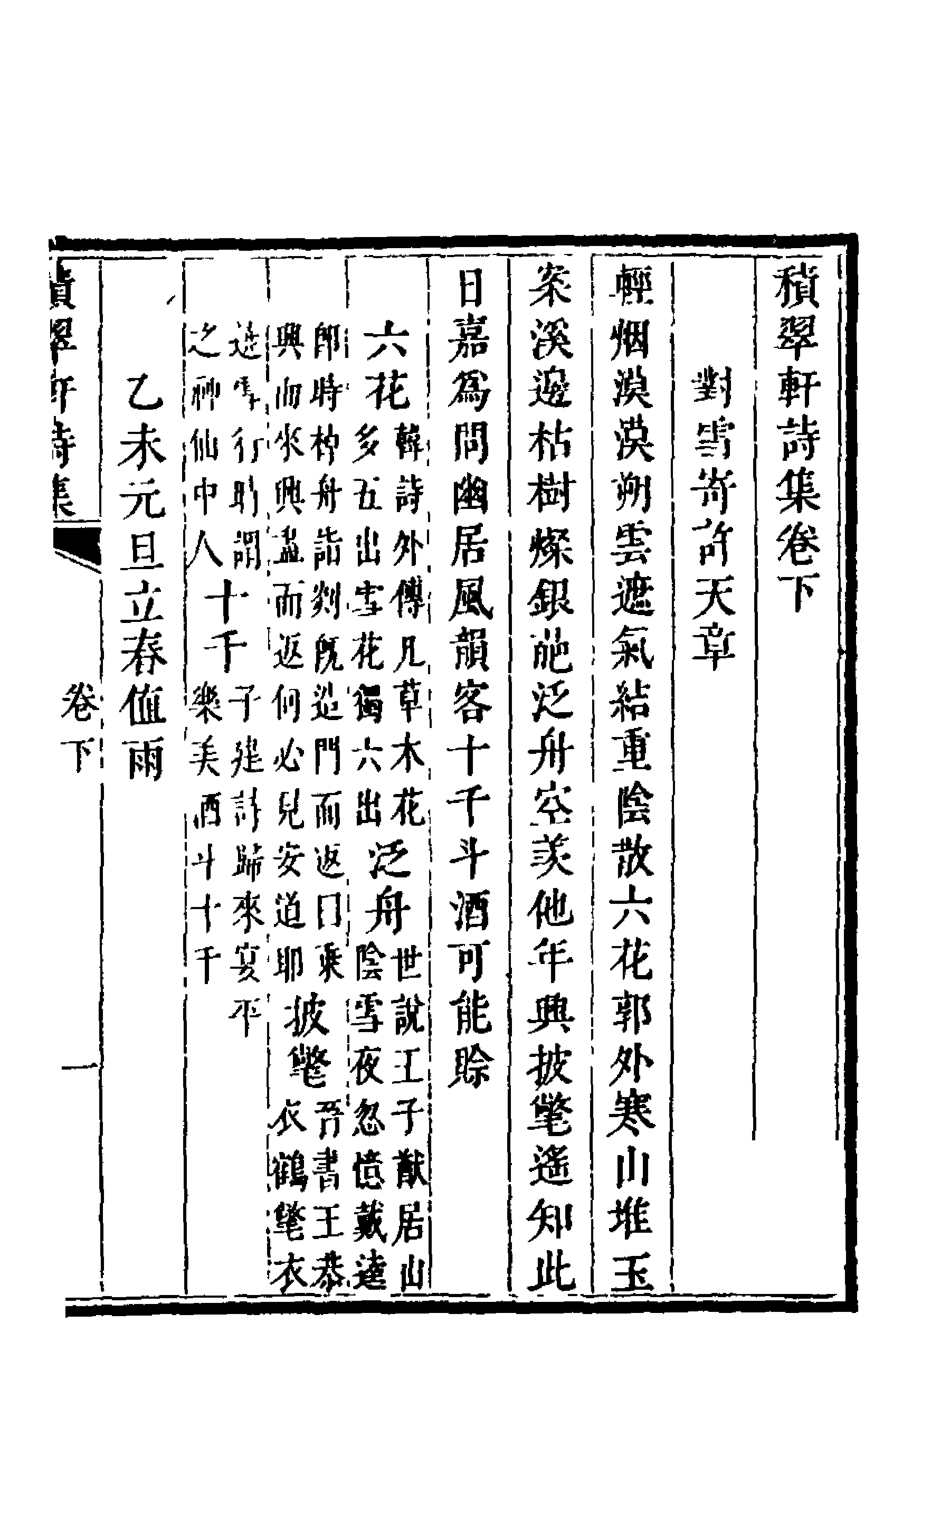 積翠軒詩集卷下
對雪寄許天章
輕烟漠漠朔雲遮氣結重陰散六花郭外寒山堆玉
案溪邊枯樹燦銀葩泛舟空羨他年興披氅遙知此
日嘉為問幽居風韻客十千斗酒可能賒
六花
韓詩外傳凡草木花
多五出雪花獨六出
泛舟
世說王子猷居山
陰雪夜忽憶戴逵
即時棹舟詣剡既造門而返曰乘
興而來興盡而返何必見安道耶
披氅
晉書王恭
衣鶴氅衣
涉雪行時謂
之神仙中人
十千
子建詩歸來宴平
樂美酒斗十千
乙未元旦立春値雨
積翠軒詩集
卷下
一